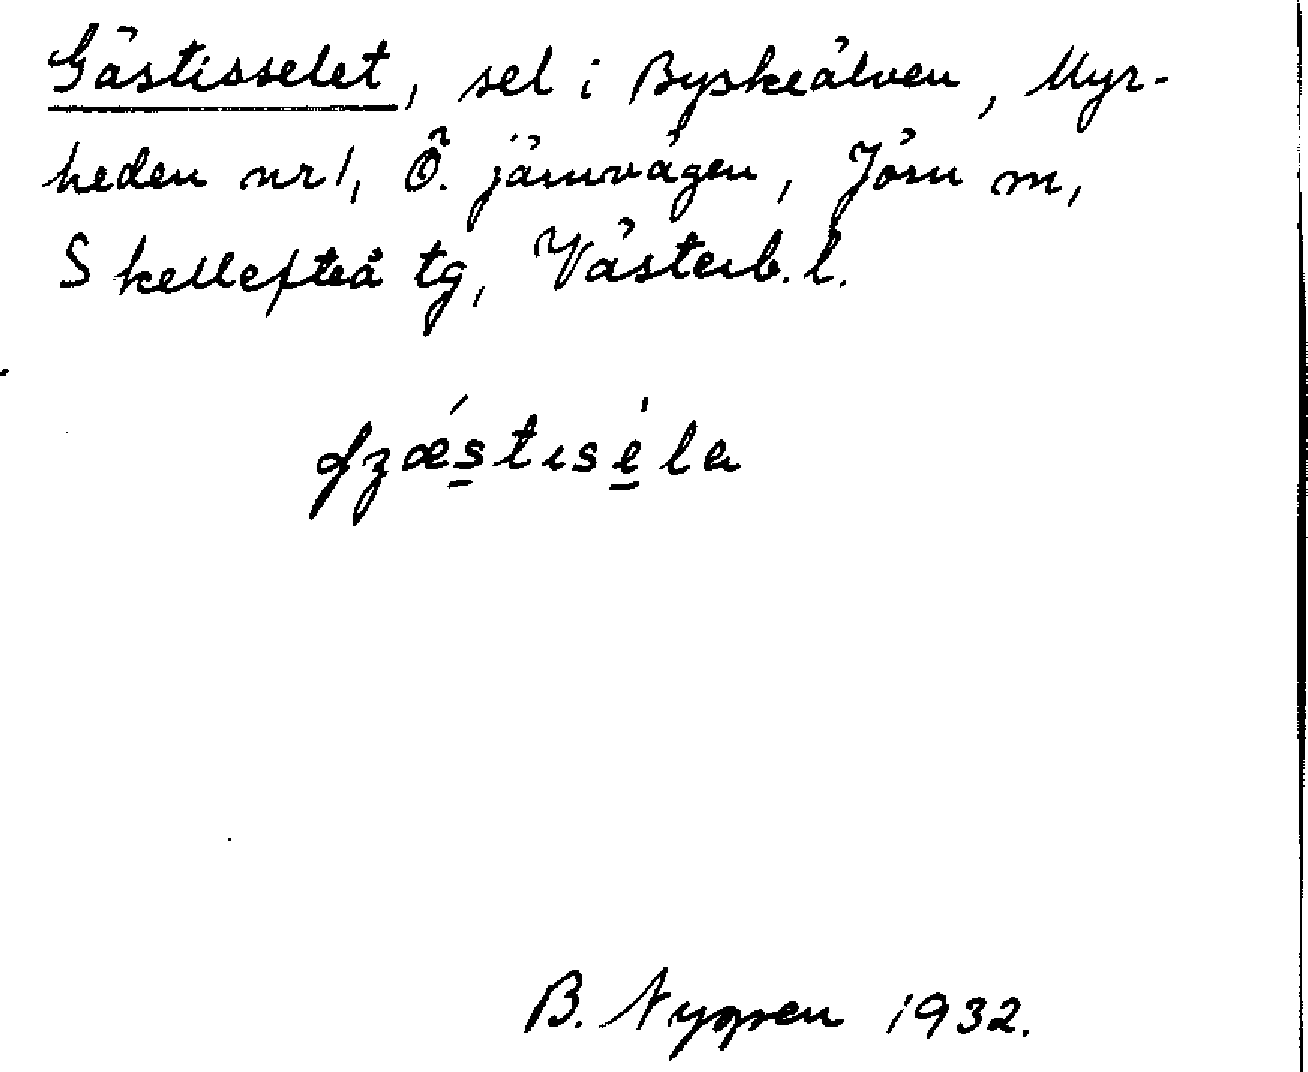 Gästisselet, sel i Byskeälven, Myr-
heden nr 1, Ö. järnvägen, Jörn m,
Skellefteå tg, Västerb. l.
B. Nygren 1932.